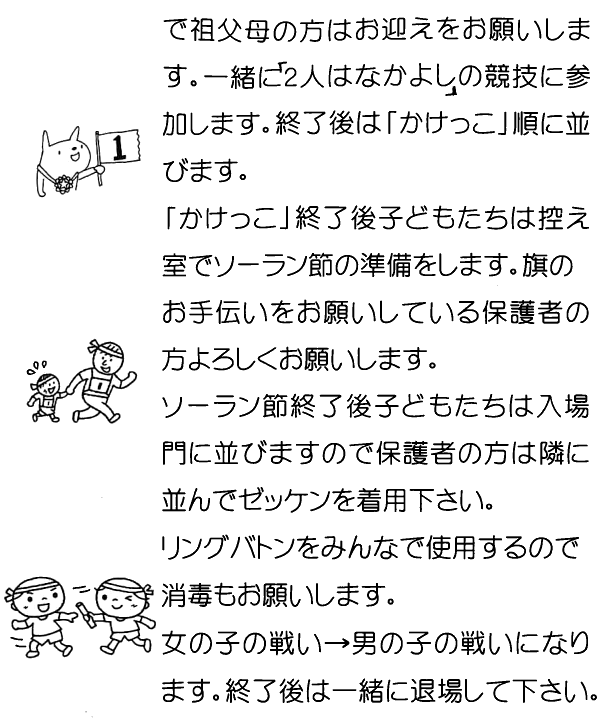 で祖父母の方はお迎えをお願いしま
す。一緒に「2人はなかよし」の競技に参
加します。終了後は「かけっこ」順に並
びます。
1
「かけっこ」終了後子どもたちは控え
室でソーラン節の準備をします。旗の
お手伝いをお願いしている保護者の
方よろしくお願いします。
ソーラン節終了後子どもたちは入場
門に並びますので保護者の方は隣に
並んでゼッケンを着用下さい。
リングバトンをみんなで使用するので
消毒もお願いします。
女の子の戦い→男の子の戦いになり
ます。終了後は一緒に退場して下さい。